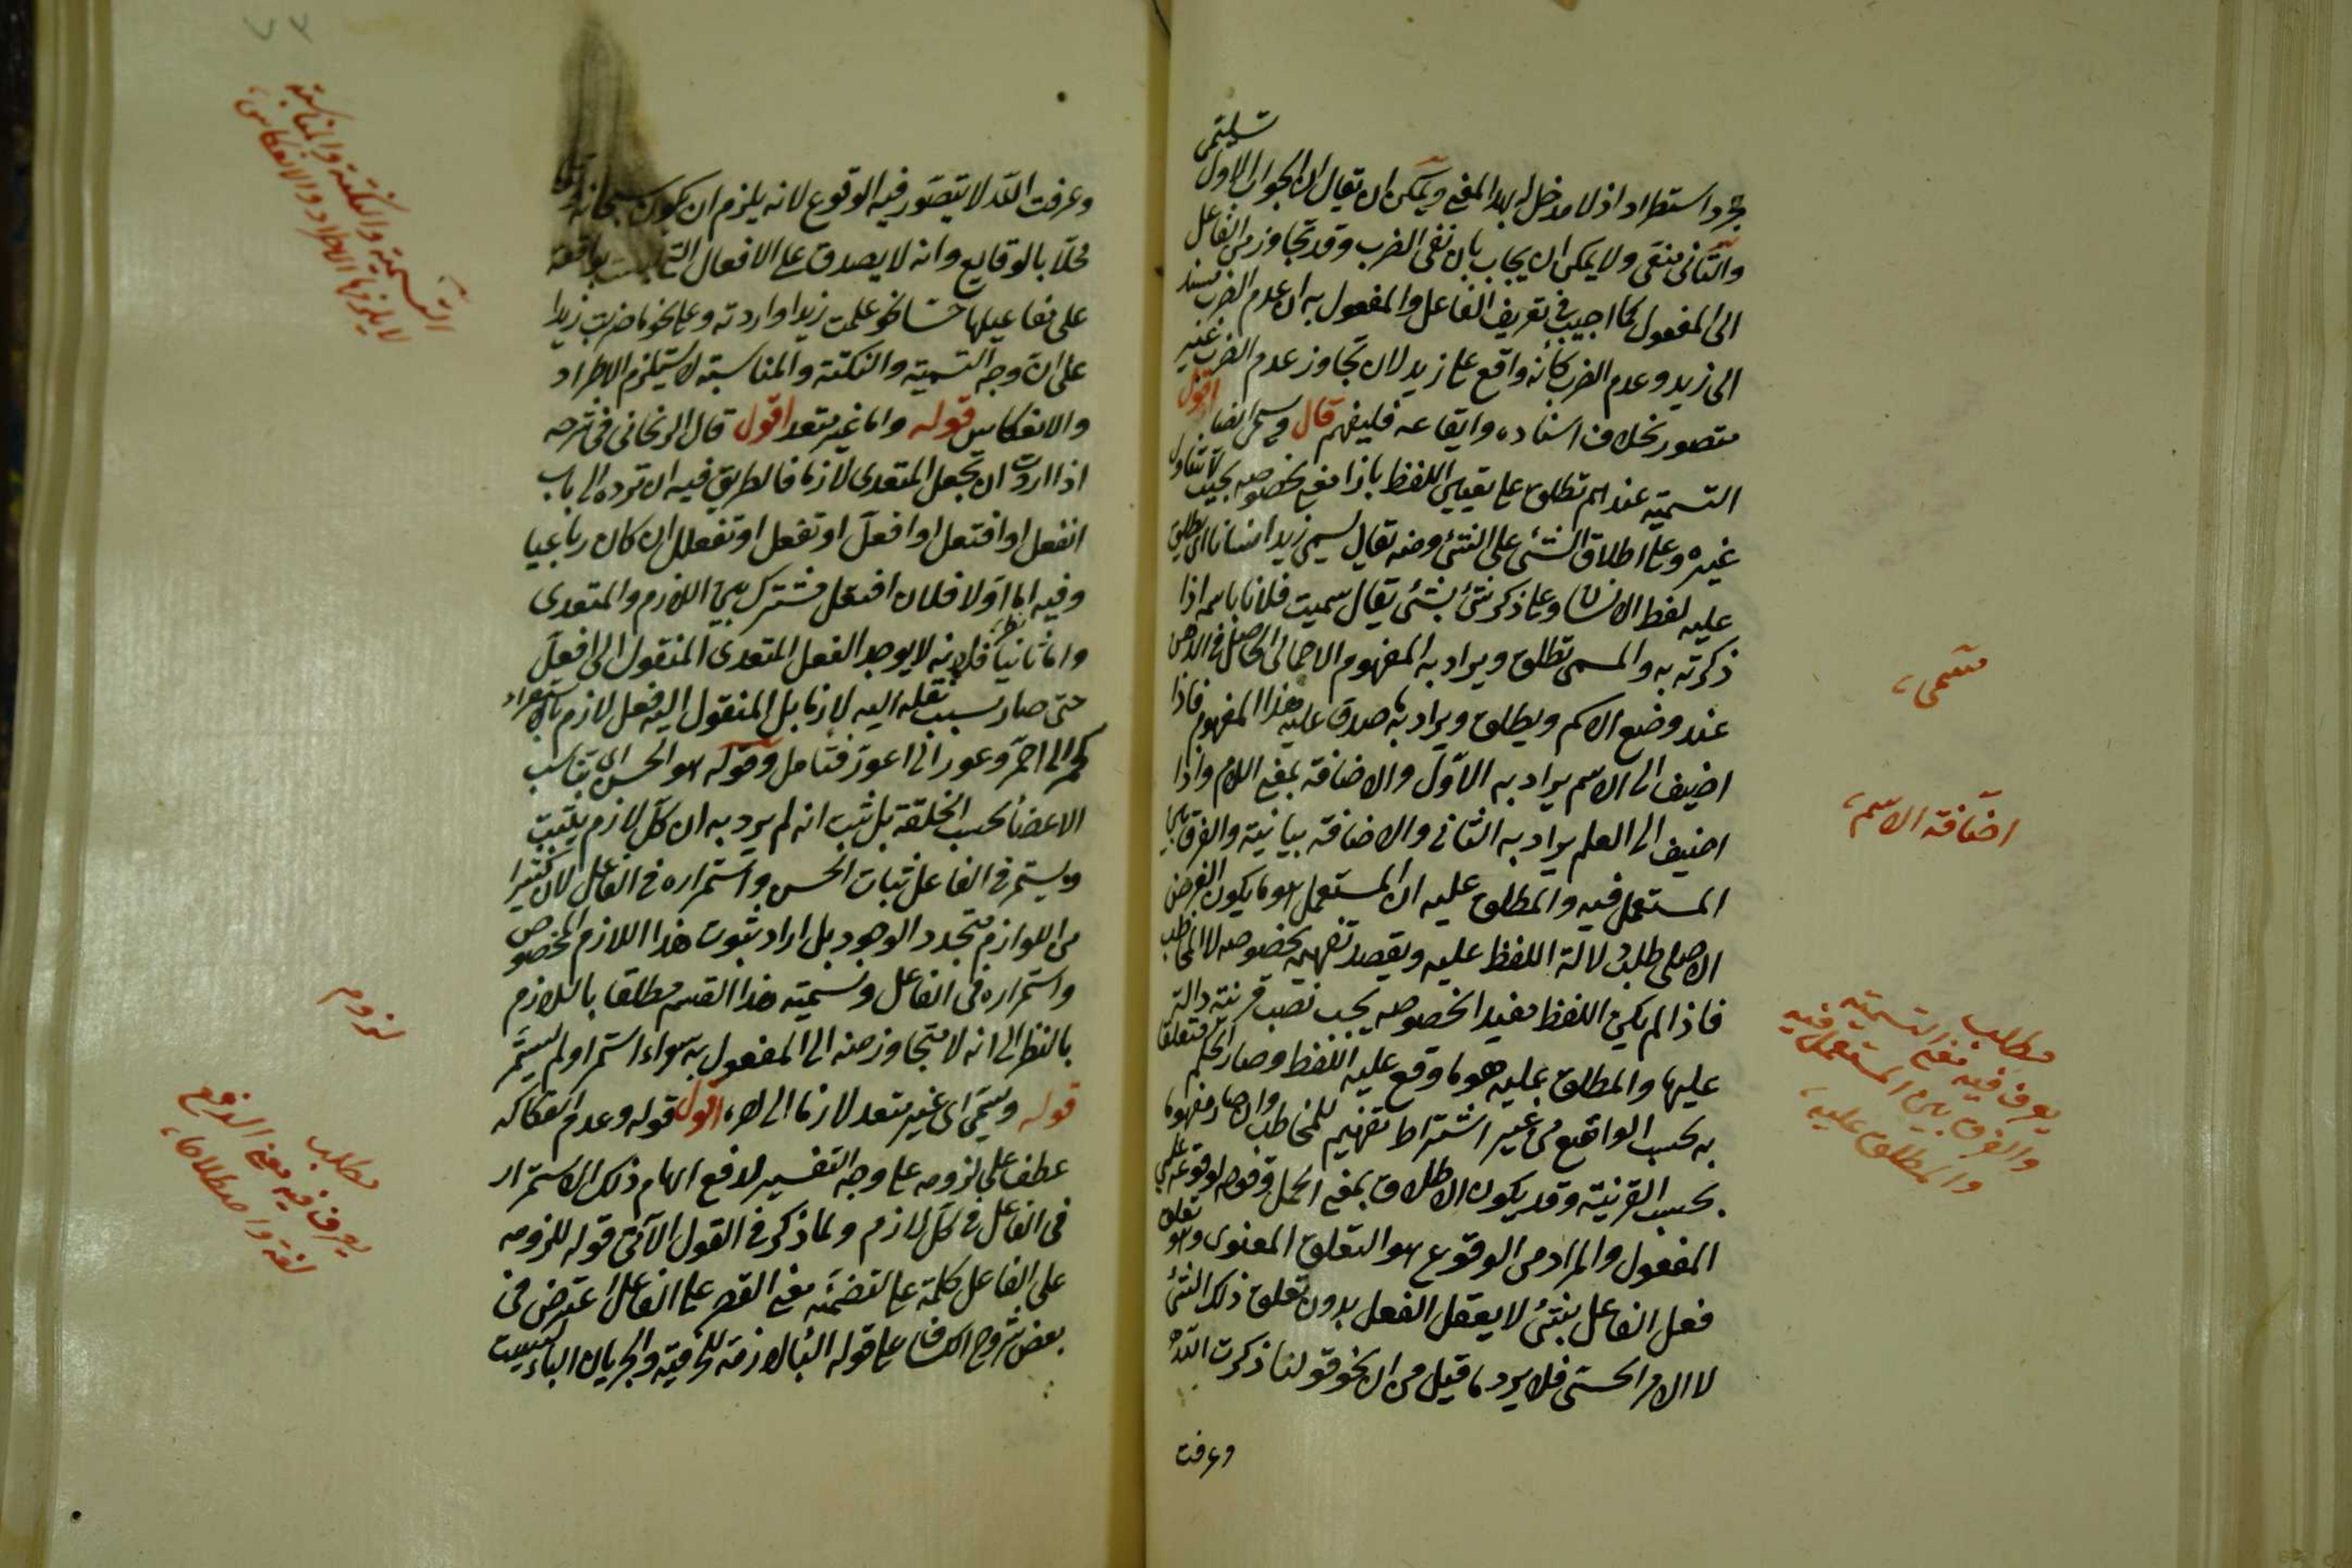 مجرد استطراد اذ لا مدخل له لهذا المعنى ويمكن ان يقال ان الجواب الاول
والثاني منفى ولا يمكن ان يجاب بان نفى الضرب وقد تجاوز من الفاعل
الى المفعول كما اجيب فى تعريف الفاعل والمفعول به ان عدم الضرب مسند
الى زيد وعدم الضرب كانه واقع على زيد لان تجاوز عدم الضرب غير
متصور بخلاف اسناده وايقاعه فليفهم قال ويسمى ايضا اقول
التسمية عندهم تطلق على تعيين اللفظ بازاء معنى بخصوصه بحيث لا يتناول
غيره وعلى اطلاق الشئ على الشئ ومنه يقال يسمى زيد انسانا اى يطلق
عليه لفظ الانسان وعلى ذكر شئ بشئ يقال سميت فلانا باسمه اذا
ذكرته به والمسمى تطلق ويراد به المفهوم الاجمالى الحاصل فى الذهن
عند وضع الاسم ويطلق ويراد به ما صدق عليه هذا المفهوم فاذا
اضيف الى الاسم يراد به الاول والاضافة بمعنى اللام واذا
اضيف الى العلم يراد به الثانى والاضافة بيانية والفرق بين
المستعمل فيه والمطلق عليه ان المستعمل هو ما يكون الغرض
الاصلى طلب دلالة اللفظ عليه ويقصد تفهيمه بخصوصه لا المخاطب
فاذا لم يكن اللفظ مفيد الخصوصه يجب نصب قرينة دالة
عليها والمطلق عليه هو ما وقع عليه اللفظ وصار الحكم متعلقا
به بحسب الواقع من غير اشتراط تفهيم للمخاطب وان صار مفهوما
بحسب القرينة وقد يكون الاطلاق بمعنى الحمل وقوله لوقوعه على
المفعول والمراد من الوقوع هو التعلق المعنوى وهو تعلق
فعل الفاعل بشئ لا يعقل الفعل بدون تعلق ذلك الشئ
لا الامر الحسى فلا يرد ما قيل من ان نحو قولنا ذكرت الله
وعرفت
مسمى
اضافة الاسم
مطلب
يعرف فيه معنى التسمية
والفرق بين المستعمل فيه
والمطلق عليه
وعرفت الله لا يتصور فيه الوقوع لانه يلزم ان يكون سبحانه وتعالى
محلا بالوقايع وانه لا يصدق على الافعال التى ليست بواقعة
على مفاعيلها حسا نحو علمت زيدا واردته وعلى نحو ما ضربت زيدا
على ان وجه التسمية والنكتة والمناسبة لا يستلزم الاطراد
والانعكاس قوله واما غير متعد اقول قال الزنجانى فى شرحه
اذا اردت ان تجعل المتعدى لازما فالطريق فيه ان ترده الى باب
انفعل او افتعل او افعل او تفعل او تفعلل ان كان رباعيا
وفيه نظر اما اولا فلان افتعل مشترك بين اللازم والمتعدى
واما ثانيا فلانه لا يوجد الفعل المتعدى المنقول الى افعل
حتى صار بسبب نقله اليه لازما بل المنقول اليه فعل لازم بالاستقراء
كحمر الى احمر وعور الى اعور فتامل وقوله هو الحسن اى تناسب
الاعضاء بحسب الخلقة بل ثبت انه لم يرد به ان كل لازم يثبت
ويستمر فى الفاعل ثبات الحسن واستمراره فى الفاعل لان كثيرا
من اللوازم متجدد الوجود بل اراد ثبوت هذا اللازم المخصوص
واستمراره فى الفاعل وتسمية هذا القسم مطلقا باللازم
بالنظر الى انه لا يتجاوز منه الى المفعول به سواء استمر او لم يستمر
قوله ويسمى اى غير متعد لازما الى اخره اقول قوله وعدم انفكاكه
عطف على لزومه على وجه التفسير لدفع ايهام ذلك الاستمرار
فى الفاعل فى كل لازم ولما ذكر فى القول الآتى قوله للزومه
على الفاعل كلمة على لتضمنه معنى القصر على الفاعل اعترض فى
بعض شروح الكشاف على قوله الباء لازمة للحرفية والجر بان الباء ليست
التسمية والنكتة والمناسبة
لا يلزمها الاطراد والانعكاس
لزوم
مطلب
يعرف فيه معنى الدفع
لغة واصطلاحا